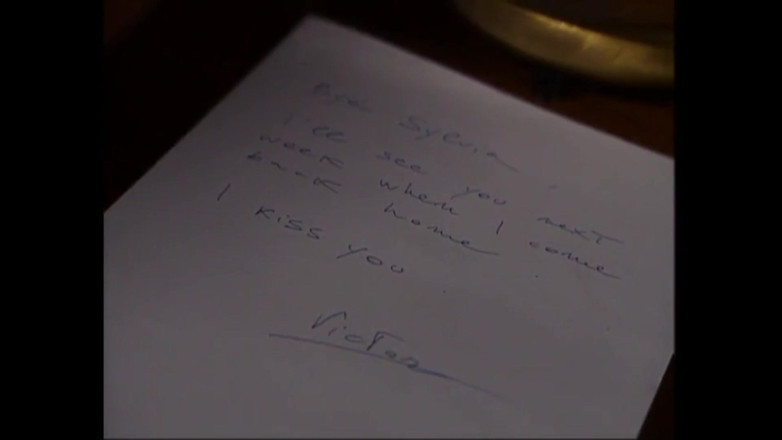 Bye Sylvia,
I'll see you next
week when I come
back home.
I kiss you.
Victor